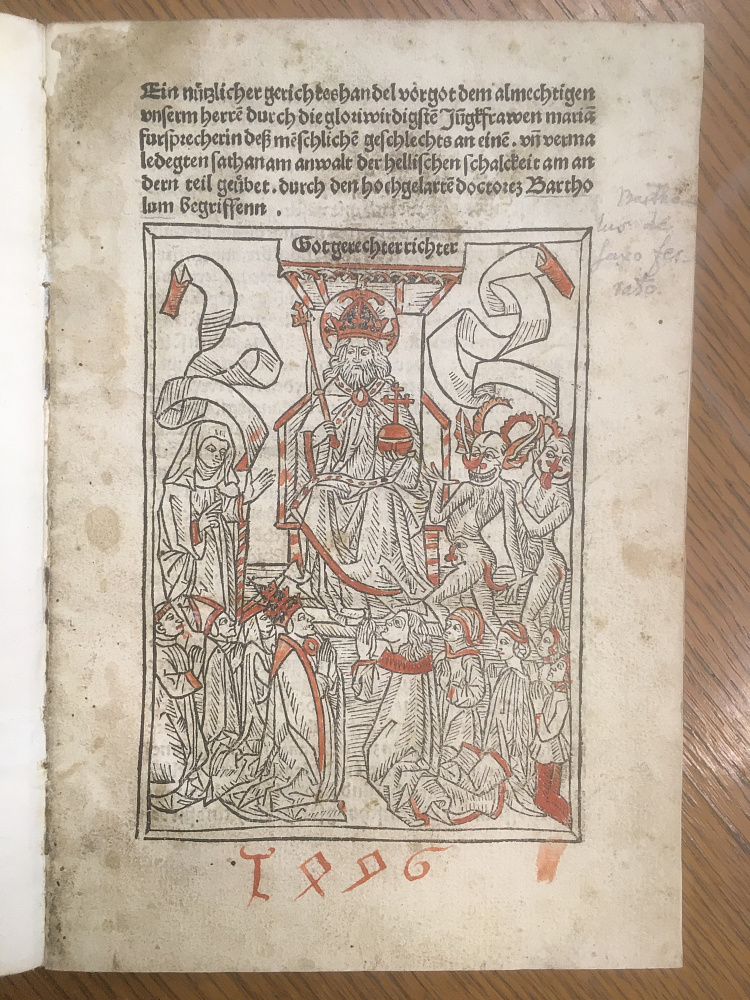 Ein nützlicher gerichteshandel vor got dem almechtigen
vnserm herrē durch die gloriwirdigstē Jūgkfrawen mariā
fursprecherin deß mēschlichē geschlechts an einē . vn̄ verma
ledegten sathanam anwalt der hellischen schalckeit am an
dern teil geůbet . durch den hochgelartē doctorez Bartho
lum begriffenn .
Got gerechter richter
Bartho
lus de
saxo fer-
rato.
1496